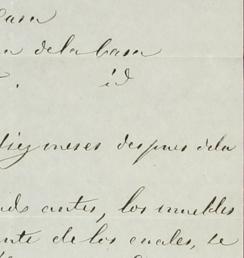 Casa
dela Casa
id
diez meses despues dela
antes, los muebles
de los cuales, se